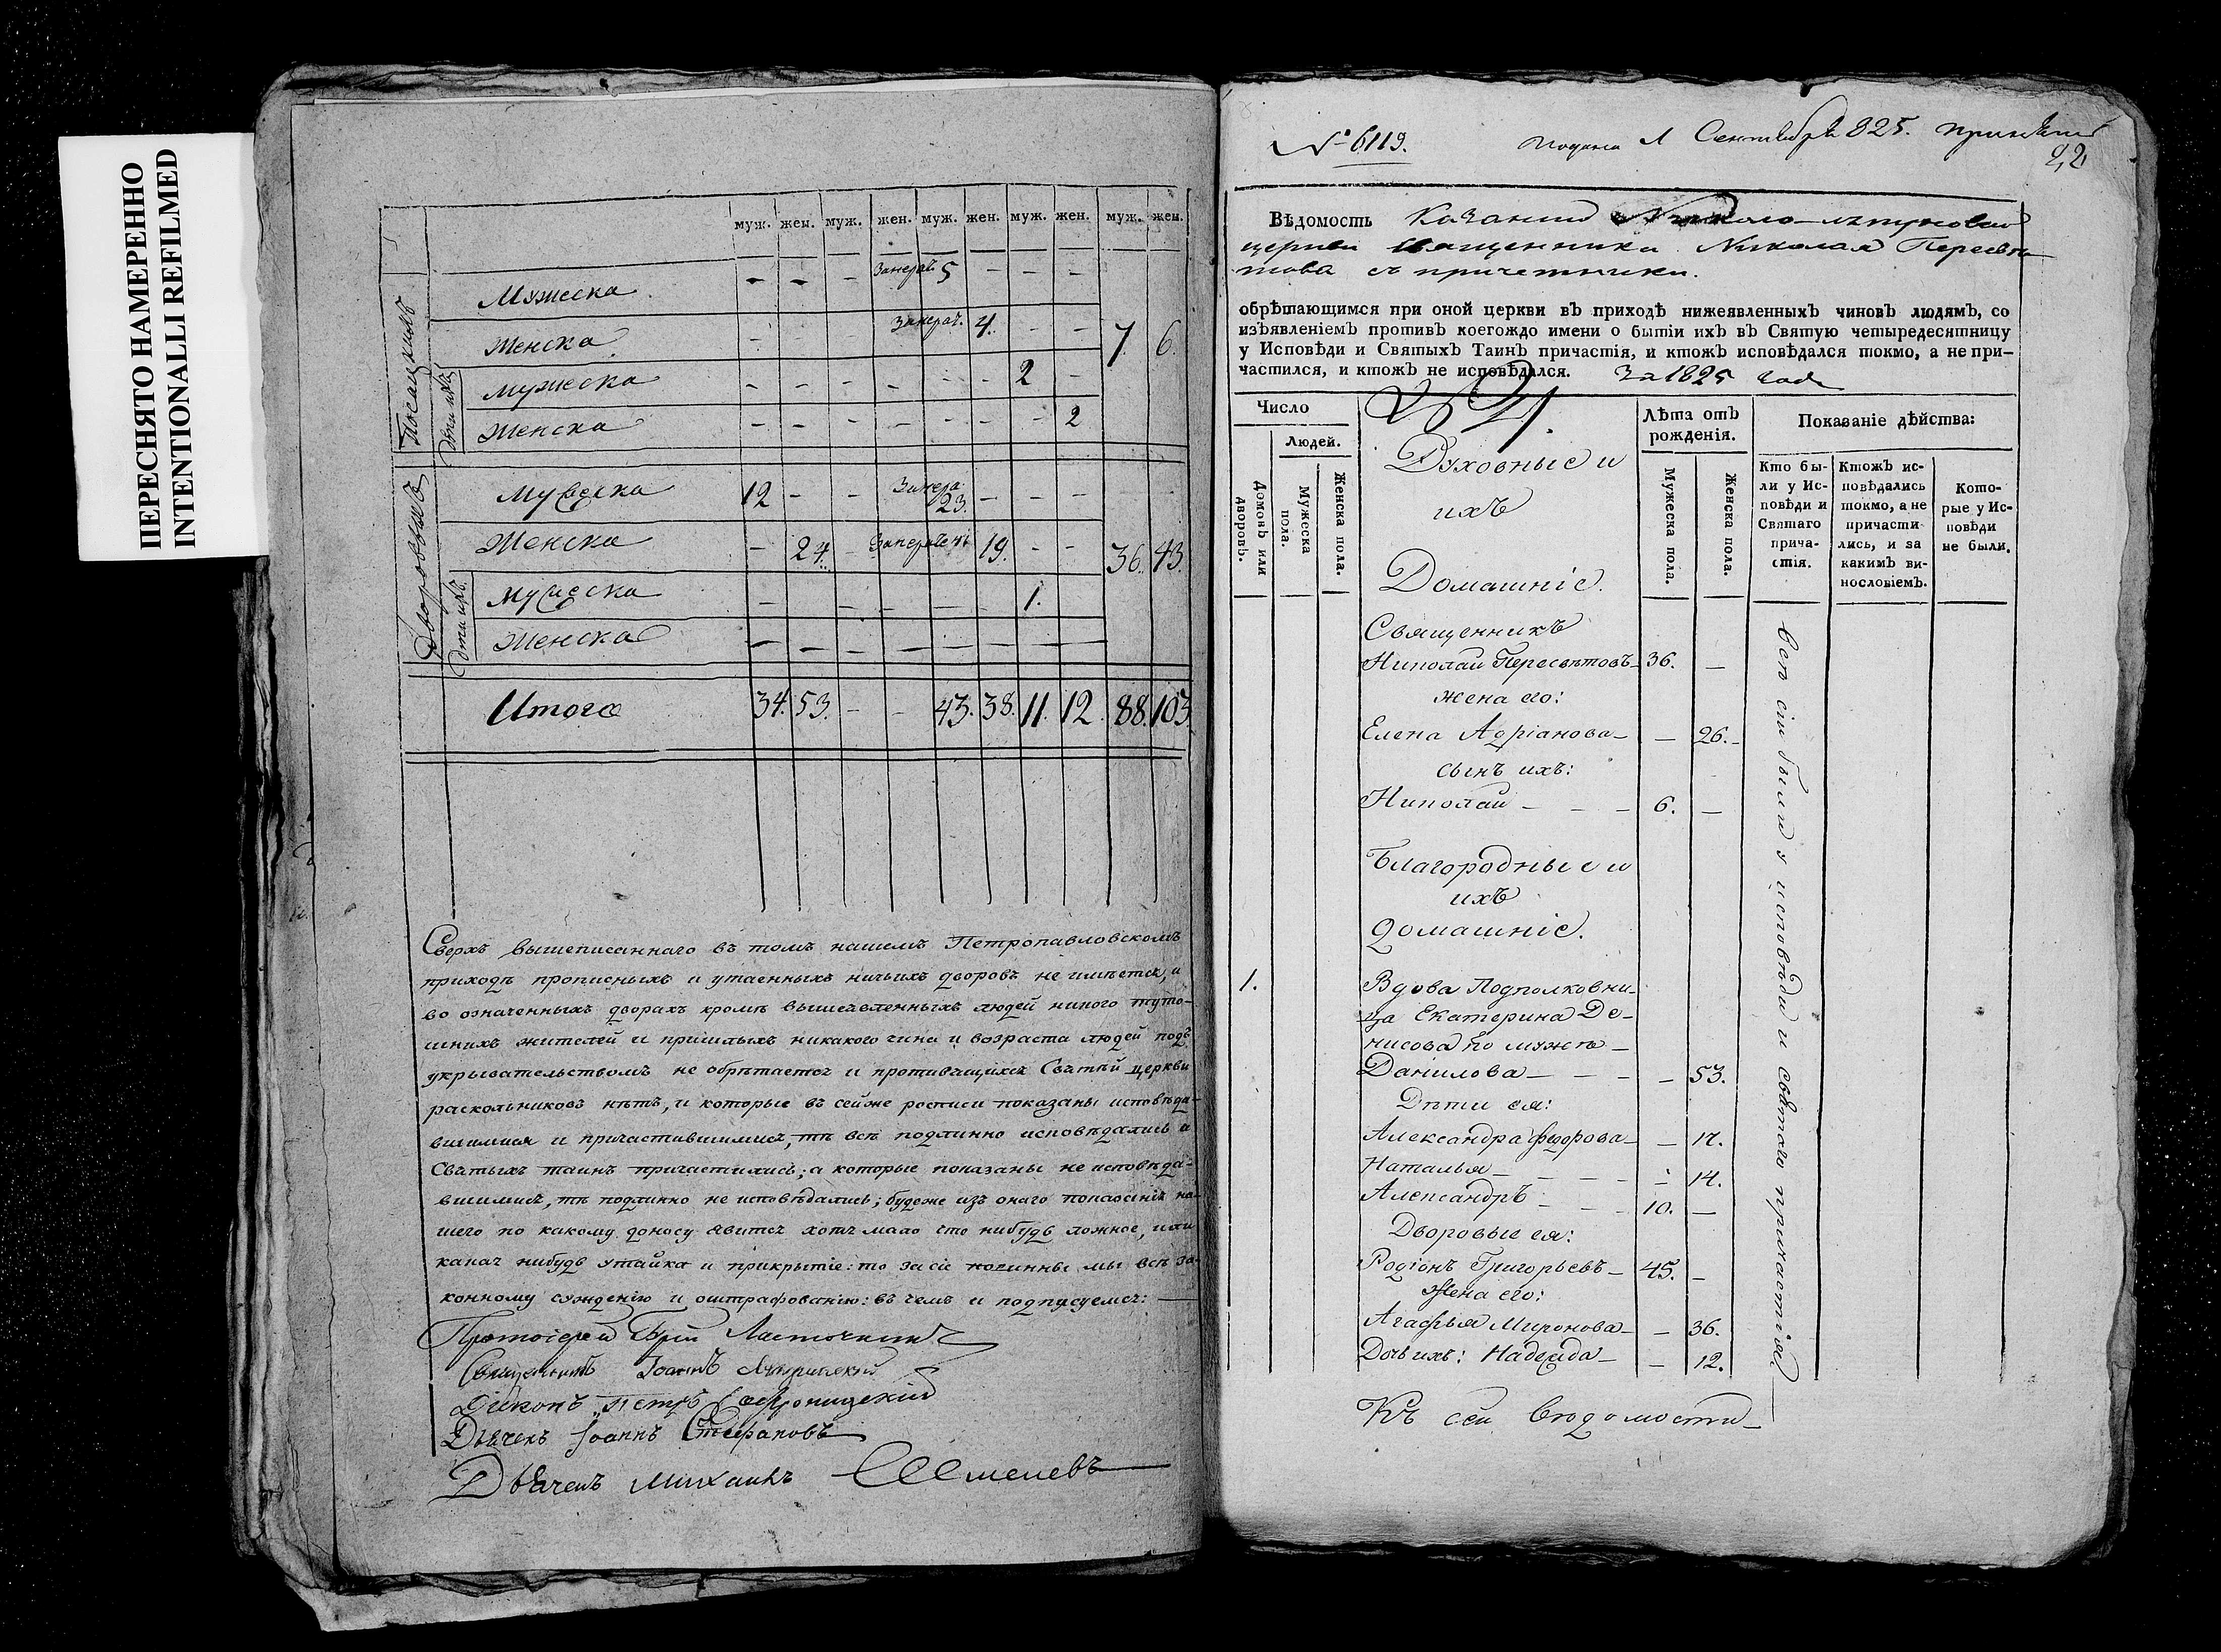 ПЕРЕСНЯТО НАМЕРЕННО
INTENTIONALLI REFILMED
муж. жен. муж. жен. муж. жен. муж. жен. муж. жен.
Посацкихъ
Мужеска - - - 5 - - -
Женска - - 4. - - 7. 6.
Дѣти ихъ
Мужеска - - - - - - 2 -
Женска - - - - - - - 2
Дворовыхъ
Мужеска 12 - - 23. - - -
Женска - 24. - 19. - - 36. 43.
Дѣти ихъ
Мужеска - - - - - 1.
Женска - - - - - - - -
Итого 34. 53. - - 43. 38. 11. 12. 88. 103.
Сверхъ вышеписаннаго въ томъ нашемъ Петропавловскомъ
приходѣ прописныхъ и утаенныхъ ничьихъ дворовъ не имѣется, и
во означенныхъ дворахъ кромѣ вышеявленныхъ людей никого туто-
шнихъ жителей и пришлыхъ никакого чина и возраста людей подъ
укрывательствомъ не обрѣтается и противящихся Святѣй церкви
раскольниковъ нѣтъ, и которые въ сейже росписи показаны исповѣда-
вшимися и причастившимися, тѣ всѣ подлинно исповѣдались и
Святыхъ таинъ причастились; а которые показаны не исповѣда-
вшимися, тѣ подлинно не исповѣдались; будеже изъ онаго показанія на-
шего по какому доносу явится хотя мало что нибудь ложное, или
какая нибудь утайка и прикрытіе: то за сіе повинны мы всѣ за-
конному сужденію и оштрафованію: въ чемъ и подписуемся:
Протоіерей
Священникъ Іоаннъ
Діаконъ Петръ
Дьячекъ Іоаннъ Стефановъ
Дьячекъ Михаилъ
№ 6119. подана 1 Сентября 825.
22
Вѣдомость Казанской Николо-
церкви священника Николая Пересвѣ-
това съ причетники.
обрѣтающимся при оной церкви въ приходѣ нижеявленныхъ чиновъ людямъ, со
изъявленіемъ противъ коегождо имени о бытіи ихъ въ Святую четыредесятницу
у Исповѣди и Святыхъ Таинъ причастія, и ктожъ исповѣдался токмо, а не при-
частился, и ктожъ не исповѣдался. За 1825 годъ
Число
Людей.
Домовъ или дворовъ.
Мужеска пола.
Женска пола.
Лѣта отъ рожденія.
Мужеска пола.
Женска пола.
Показаніе дѣйства:
Кто бы-
ли у Ис-
повѣди и
Святаго
прича-
стія.
Ктожъ ис-
повѣдались
токмо, а не
причасти-
лись, и за
какимъ ви-
нословіемъ.
Кото-
рые у Ис-
повѣди
не были.
Духовные и
ихъ
Домашніе.
Священникъ
Николай Пересвѣтовъ 36. -
жена его:
Елена Адріанова - 26.
сынъ ихъ:
Николай - - - 6. -
Благородные и
ихъ
домашніе.
1. Вдова Подполковни-
ца Екатерина Де-
нисова по мужѣ
Данилова - - - 53.
Дѣти ея:
Александра Федорова - 17.
Наталья - - - - 14.
Александръ - - - 10. -
Дворовые ея:
Родіонъ Григорьевъ 45. -
Жена его:
Агафья Миронова - 36.
Дочь ихъ: Надежда - 12.
всѣ сіи были у исповѣди и святаго причастія
Къ сей вѣдомости